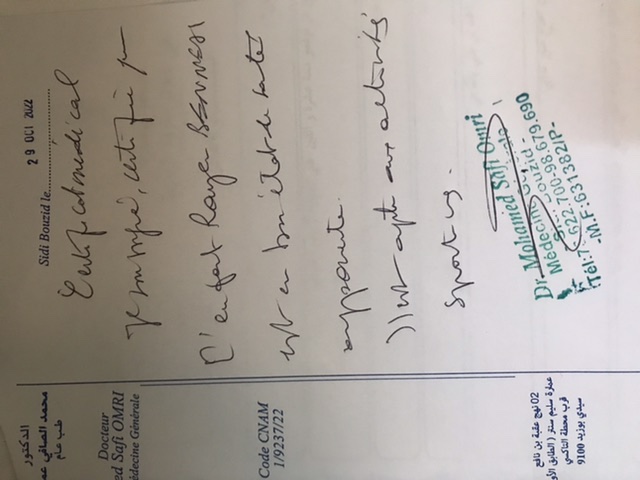 الدكتور
محمد الصافي
طب عام
Docteur
ed Safi OMRI
édecine Générale
Code CNAM
1/9237/22
Sidi Bouzid le
29 OCT 2022
Certificat médical
Je soussigné, certifie
L'enfant Rayen
est en bon état de santé
apparente.
Il est apte aux activités
Sportives.
Dr. Mohamed Safi Omri
Médecine
Tél:7 .622.700-98.679.690
-M.F:631382/P-
02 نهج عقبة بن نافع
عمارة سليم سنتر (الطابق الأو
قرب محطة التاكسي
سيدي بوزيد 9100